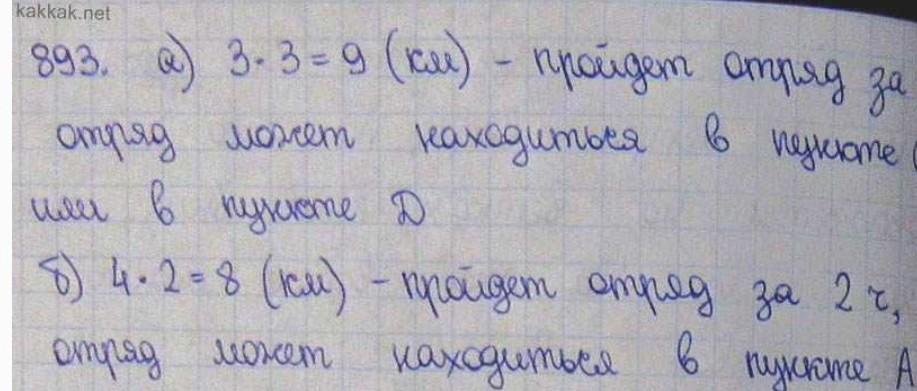 kakkak.net
893. а) 3·3=9 (км) - пройдет отряд за
отряд может находиться в пункте
или в пункте D
б) 4·2=8 (км) - пройдет отряд за 2 ч,
отряд может находиться в пункте A